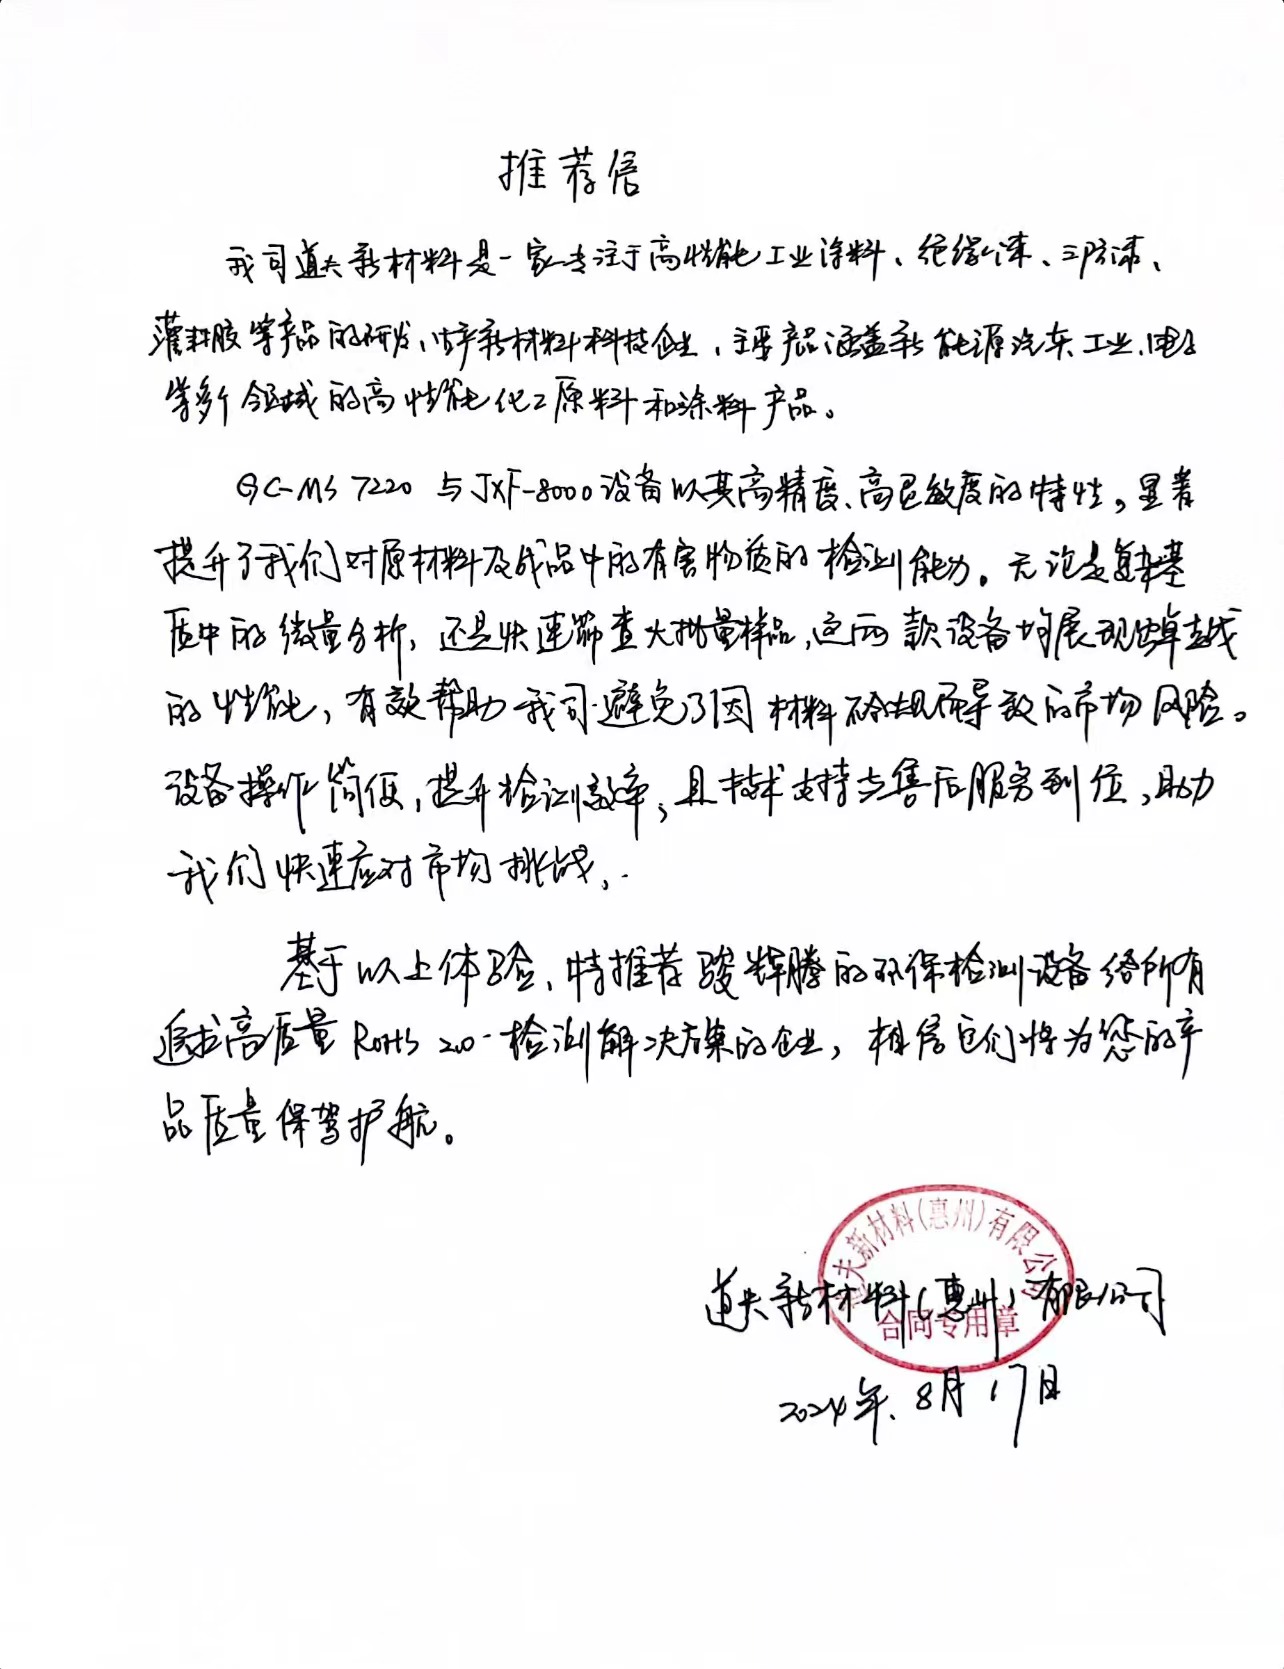 推荐信
我司道夫新材料是一家专注于高性能工业涂料、绝缘漆、三防漆、
灌封胶等产品的研发、生产新材料科技企业，主要产品涵盖新能源汽车、工业、电子
等多个领域的高性能化工原料和涂料产品。
GC-MS 7220 与JXF-8000设备以其高精度、高灵敏度的特性，显著
提升了我们对原材料及成品中的有害物质的检测能力。无论是复杂基
质中的微量分析，还是快速筛查大批量样品，这两款设备均展现出卓越
的性能，有效帮助我司避免了因材料不合规而导致的市场风险。
设备操作简便，提升检测效率，且技术支持与售后服务到位，助力
我们快速应对市场挑战，
基于以上体验，特推荐骏辉腾的环保检测设备给所有
追求高质量RoHS 2.0 检测解决方案的企业，相信它们将为您的产
品质量保驾护航。
道夫新材料(惠州)有限公司
合同专用章
道夫新材料(惠州)有限公司
2024年8月17日